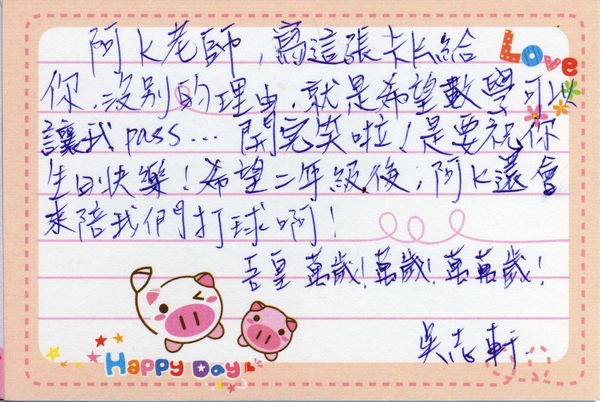 阿K老師，寫這張卡片給
Love
你，沒別的理由，就是希望數學可以
讓我pass... 開完笑啦！是要祝你
生日快樂！希望二年級後，阿K還會
來陪我們打球啊！
吾皇萬歲！萬歲！萬萬歲！
吳志軒
Happy Day